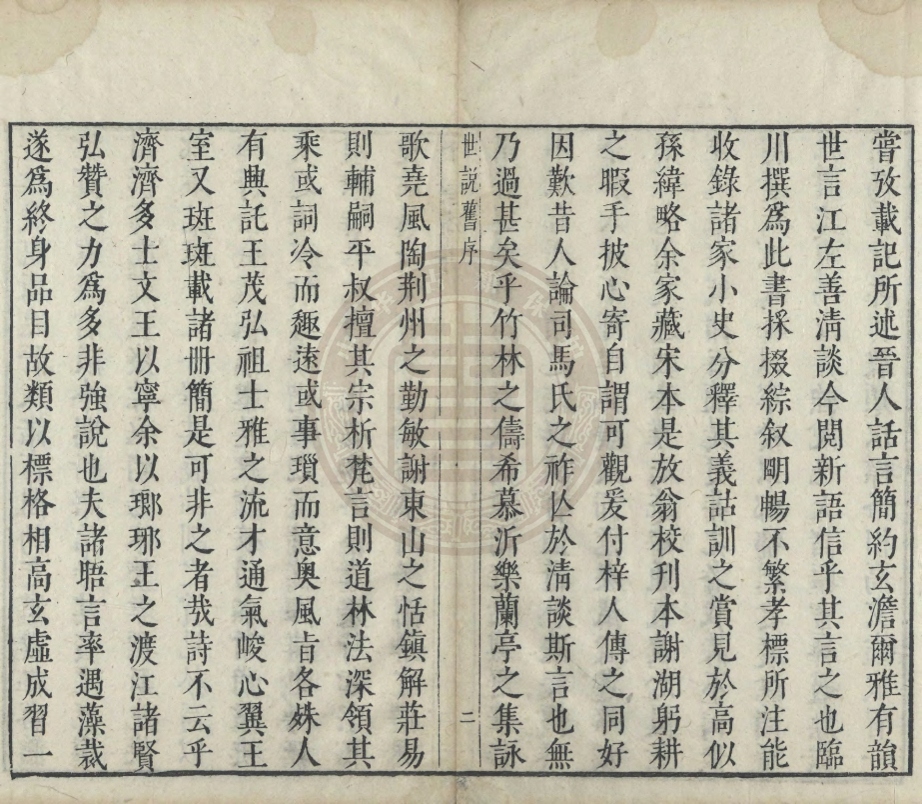 嘗攷載記所述晉人話言簡約玄澹爾雅有韻
世言江左善清談今閱新語信乎其言之也臨
川撰為此書採掇綜叙明暢不繁孝標所注能
收錄諸家小史分釋其義詁訓之賞見於高似
孫緯略余家藏宋本是放翁校刊本謝湖躬耕
之暇手披心寄自謂可觀爰付梓人傳之同好
因歎昔人論司馬氏之祚亾於清談斯言也無
乃過甚矣乎竹林之儔希慕沂樂蘭亭之集詠
世說舊序
二
歌堯風陶荆州之勤敏謝東山之恬鎮解莊易
則輔嗣平叔擅其宗析梵言則道林法深領其
乘或詞冷而趣遠或事瑣而意奧風旨各殊人
有興託王茂弘祖士雅之流才通氣峻心翼王
室又斑斑載諸册簡是可非之者㢤詩不云乎
濟濟多士文王以寧余以瑯琊王之渡江諸賢
弘贊之力為多非強說也夫諸晤言率遇藻裁
遂為終身品目故類以標格相高玄虛成習一